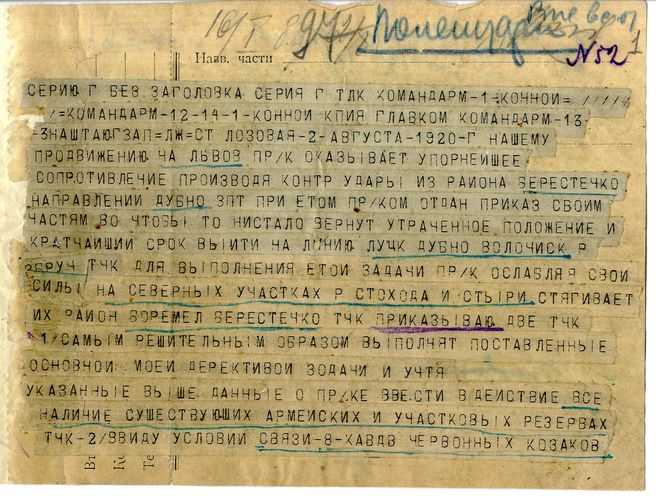 16/I
Назв. части
N52
СЕРИЮ Г БЕЗ ЗАГОЛОВКА СЕРИЯ Г ТЛК КОМАНДАРМ-1-КОННОИ=/////
/=КОМАНДАРМ-12-14-1-КОННОИ КПИЯ ГЛАВКОМ КОМАНДАРМ-13-
-3НАШТАЮГЗАП=ЛЖ=СТ ЛОЗОВАЯ-2-АВГУСТА-1920-Г НАШЕМУ
ПРОДВИЖЕНИЮ ЧА ЛЬВОВ ПР/К ОКАЗЫВАЕТ УПОРНЕИШЕЕ
СОПРОТИВЛЕНИЕ ПРОИЗВОДЯ КОНТР УДАРЫ ИЗ РАИОНА БЕРЕСТЕЧКО
НАПРАВЛЕНИИ ДУБНО ЗПТ ПРИ ЕТОМ ПР/КОМ ОТДАН ПРИКАЗ СВОИМ
ЧАСТЯМ ВО ЧТОБЫ ТО НИСТАЛО ВЕРНУТ УТРАЧЕННОЕ ПОЛОЖЕНИЕ И
КРАТЧАИШИИ СРОК ВЫИТИ НА ЛИНИЮ ЛУЧК ДУБНО ВОЛОЧИСК Р
ЗБРУЧ ТЧК ДЛЯ ВЫПОЛНЕНИЯ ЕТОИ ЗАДАЧИ ПР/К ОСЛАБЛЯЯ СВОИ
СИЛЫ НА СЕВЕРНЫХ УЧАСТКАХ Р СТОХОДА И СТЫРИ СТЯГИВАЕТ
ИХ РАИОН БОРЕМЕЛ БЕРЕСТЕЧКО ТЧК ПРИКАЗЫВАЮ ДВЕ ТЧК
1/САМЫМ РЕШИТЕЛЬНЫМ ОБРАЗОМ ВЫПОЛНЯТ ПОСТАВЛЕННЫЕ
ОСНОВНОИ МОЕИ ДЕРЕКТИВОИ ЗОДАЧИ И УЧТЯ
УКАЗАННЫЕ ВЫШЕ ДАННЫЕ О ПР/КЕ ВВЕСТИ В ДЕИСТВИЕ ВСЕ
НАЛИЧИЕ СУШЕСТВУЮШИХ АРМЕИСКИХ И УЧАСТКОВЫХ РЕЗЕРВАХ
ТЧК-2/ВВИДУ УСЛОВИИ СВЯЗИ-8-КАВДВ ЧЕРВОННЫХ КОЗАКОВ